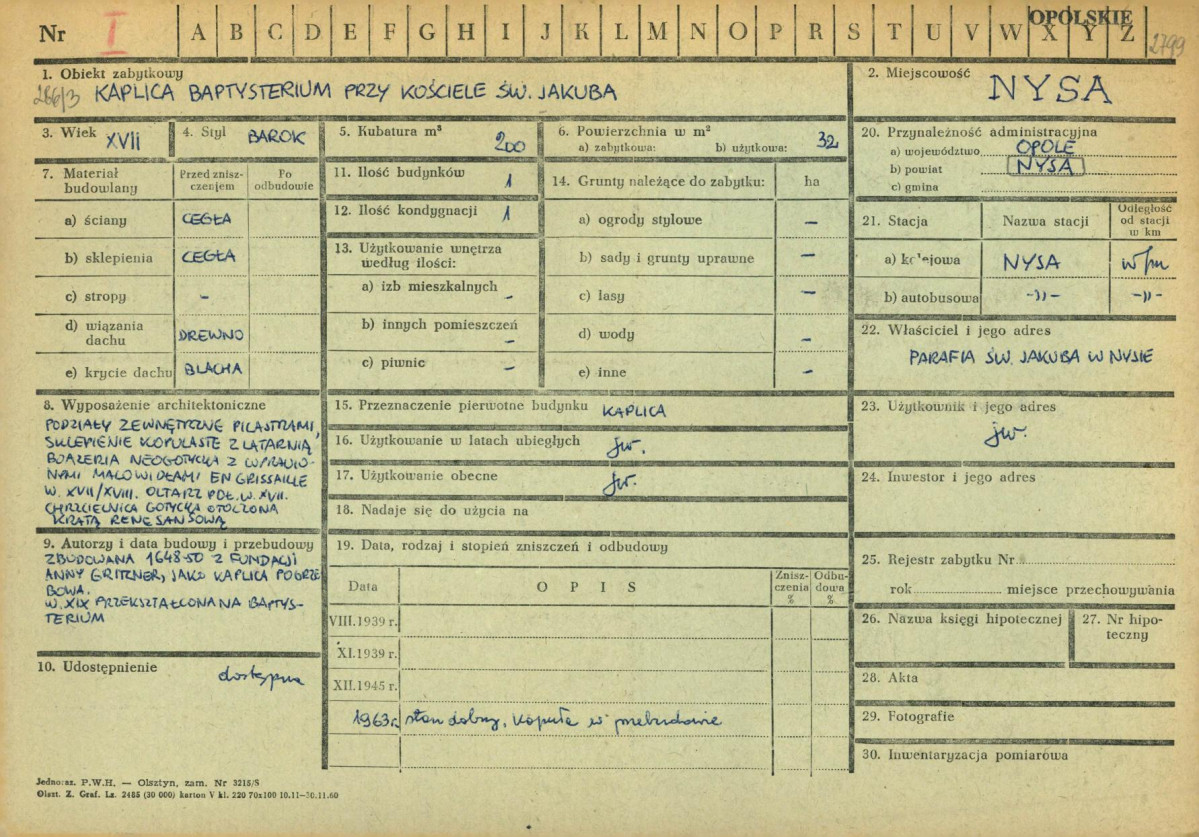 OPOLSKIE
Nr I A B C D E F G H I J K L M N O P R S T U V W X Y Z 2799
1. Obiekt zabytkowy
266/3 KAPLICA BAPTYSTERIUM PRZY KOŚCIELE ŚW. JAKUBA
2. Miejscowość NYSA
3. Wiek XVII
4. Styl BAROK
5. Kubatura m³ 200
6. Powierzchnia w m²
a) zabytkowa: b) użytkowa: 32
7. Materiał budowlany
Przed zniszczeniem
Po odbudowie
a) ściany CEGŁA
b) sklepienia CEGŁA
c) stropy -
d) wiązania dachu DREWNO
e) krycie dachu BLACHA
8. Wyposażenie architektoniczne
PODZIAŁY ZEWNĘTRZNE PILASTRAMI,
SKLEPIENIE KOPULASTE Z LATARNIĄ
BOAZERIA NEOGOTYCKA Z WPRAWIO-
NYMI MALOWIDŁAMI EN GRISSAILLE
W. XVII/XVIII. OŁTARZ POŁ. W. XVII.
CHRZCIELNICA GOTYCKA OTOCZONA
KRATĄ RENESANSOWĄ
9. Autorzy i data budowy i przebudowy
ZBUDOWANA 1648-50 Z FUNDACJI
ANNY GRITZNER, JAKO KAPLICA POGRZE
BOWA.
W. XIX PRZEKSZTAŁCONA NA BAPTYS-
TERIUM
10. Udostępnienie
dostępna
11. Ilość budynków 1
12. Ilość kondygnacji 1
13. Użytkowanie wnętrza
według ilości:
a) izb mieszkalnych -
b) innych pomieszczeń -
c) piwnic -
14. Grunty należące do zabytku: ha
a) ogrody stylowe -
b) sady i grunty uprawne -
c) lasy -
d) wody -
e) inne -
15. Przeznaczenie pierwotne budynku KAPLICA
16. Użytkowanie w latach ubiegłych jw.
17. Użytkowanie obecne jw.
18. Nadaje się do użycia na
19. Data, rodzaj i stopień zniszczeń i odbudowy
Data OPIS Zniszczenia % Odbudowa %
VIII.1939 r.
XI.1939 r.
XII.1945 r.
1963 r. stan dobry, kopuła w przebudowie
20. Przynależność administracyjna
a) województwo OPOLE
b) powiat NYSA
c) gmina
21. Stacja Nazwa stacji Odległość od stacji w km
a) kolejowa NYSA w/m
b) autobusowa -))- -))-
22. Właściciel i jego adres
PARAFIA ŚW. JAKUBA W NYSIE
23. Użytkownik i jego adres
jw.
24. Inwestor i jego adres
25. Rejestr zabytku Nr
rok miejsce przechowywania
26. Nazwa księgi hipotecznej
27. Nr hipoteczny
28. Akta
29. Fotografie
30. Inwentaryzacja pomiarowa
Jednoraz. P.W.H. — Olsztyn, zam. Nr 3215/S
Olszt. Z. Graf. Lz. 2485 (30 000) karton V kl. 220 70x100 10.11—30.11.60